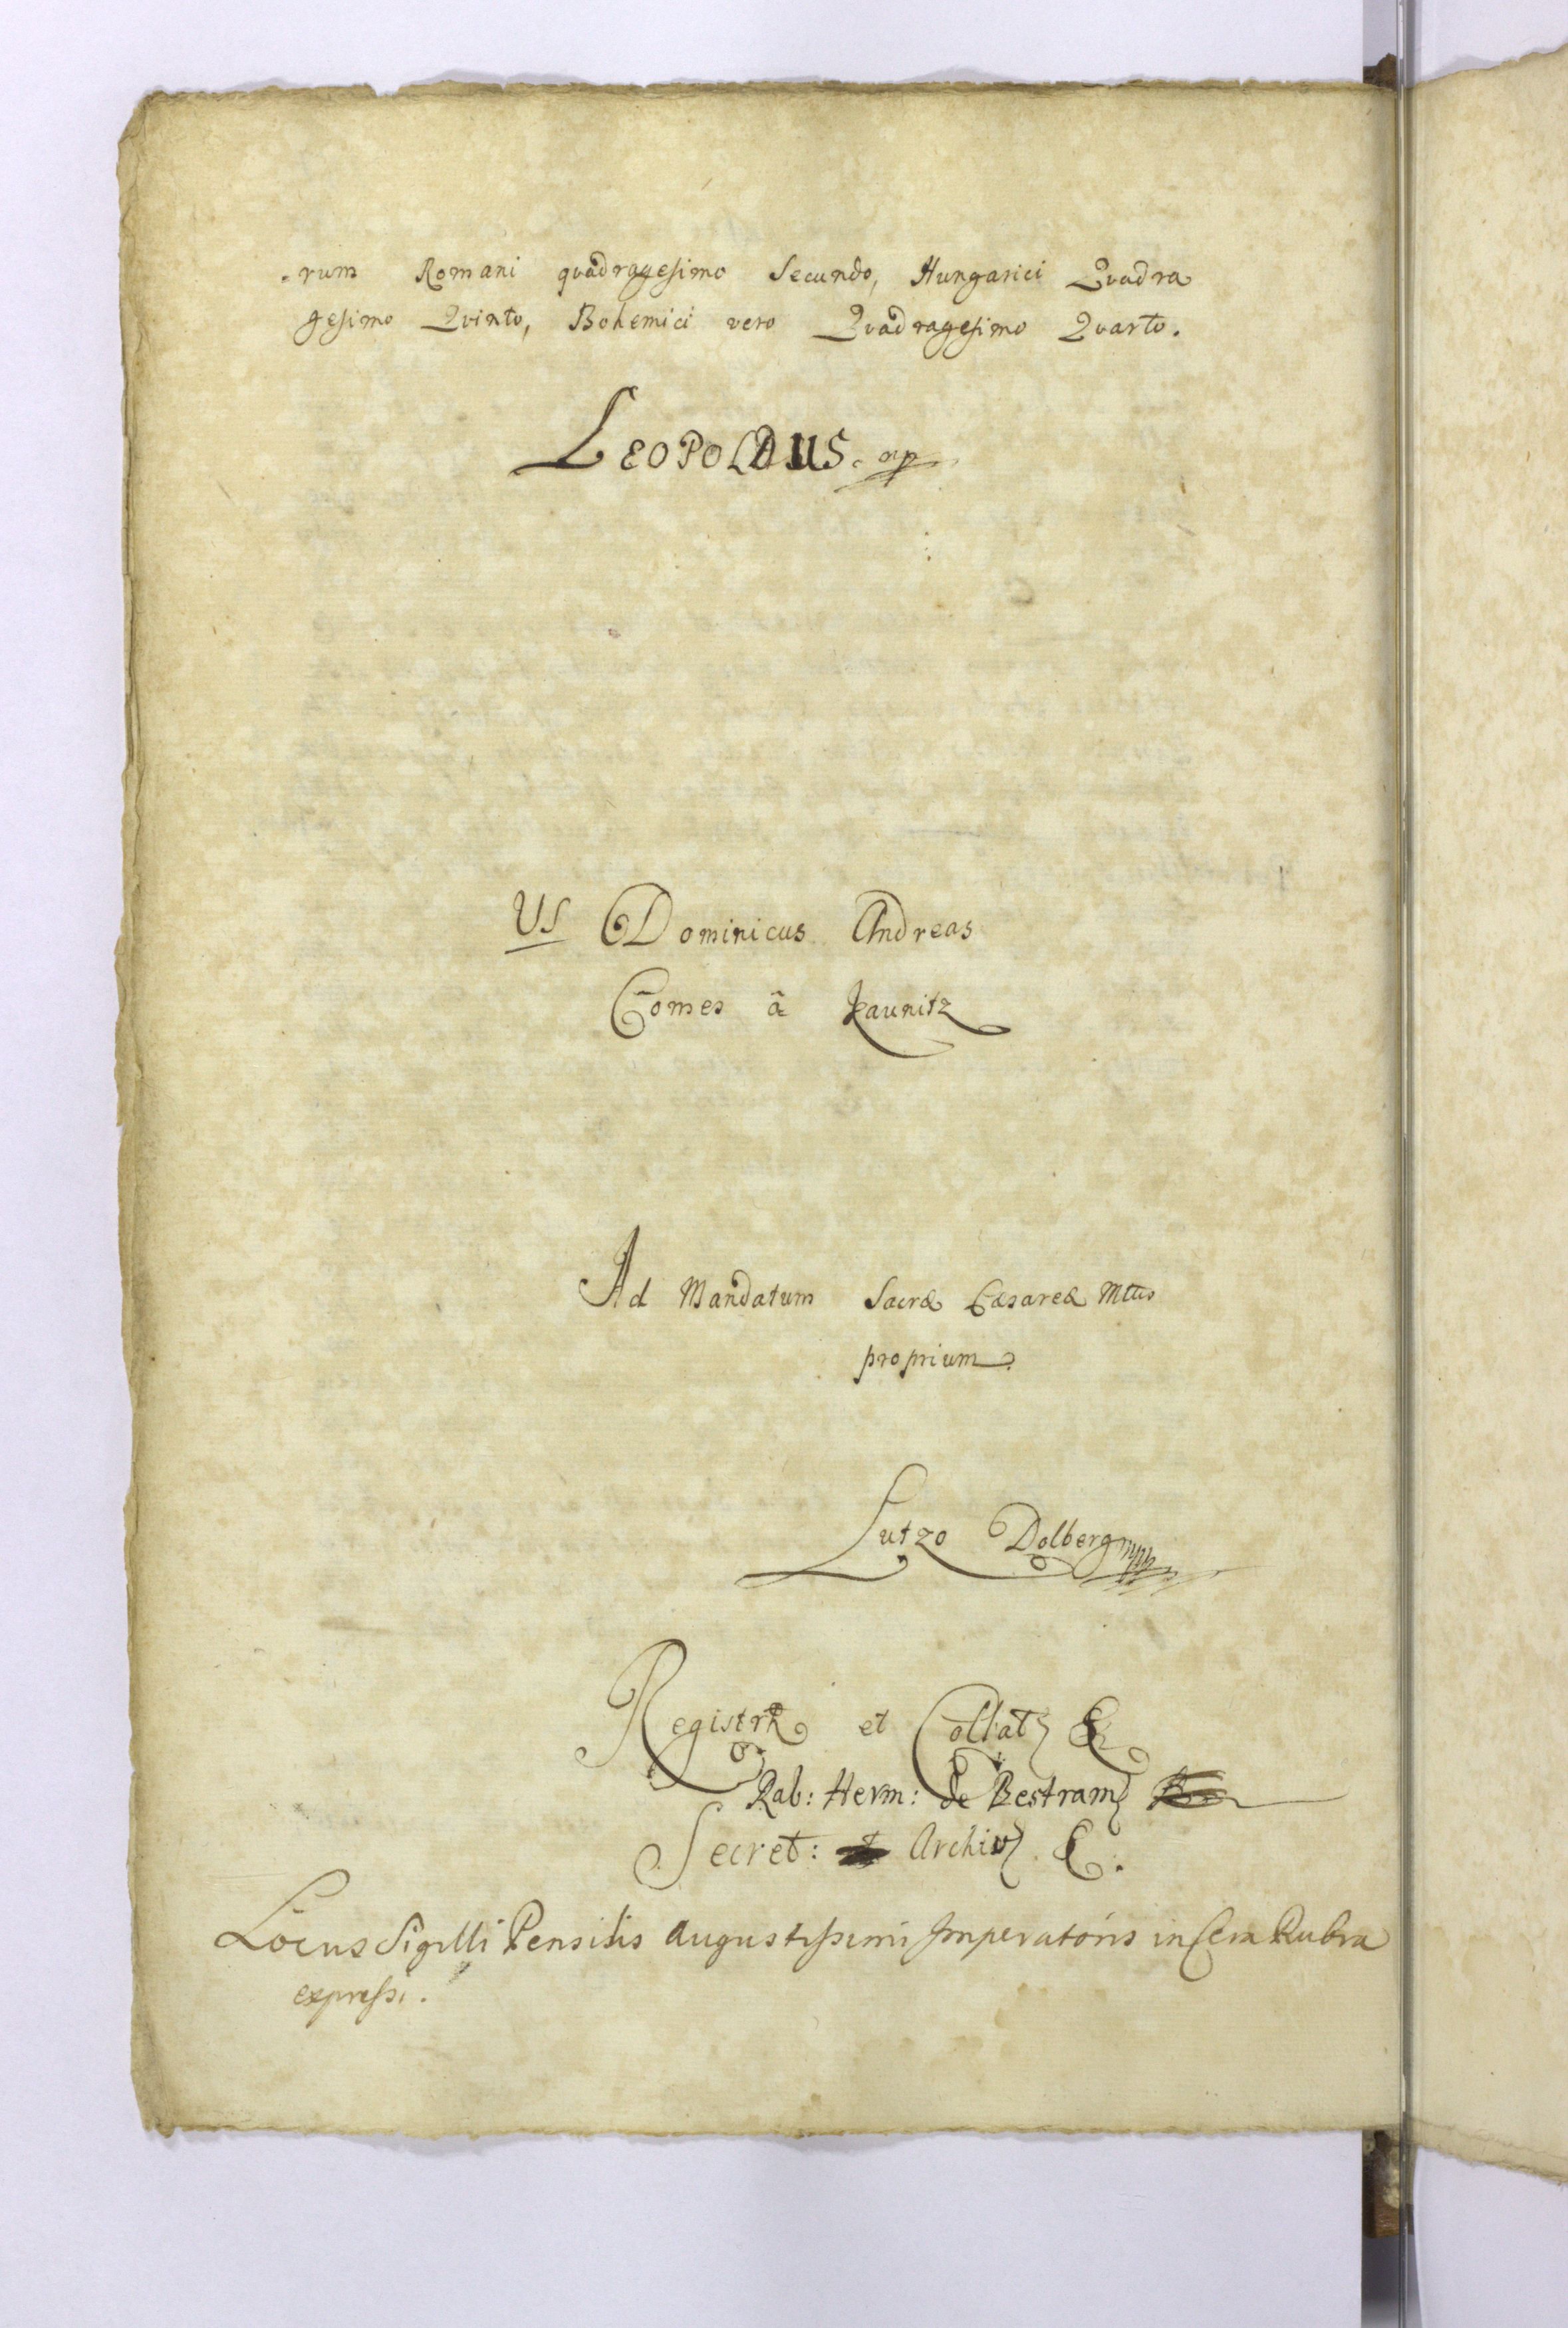 -rum Romani quadragesimo Secundo, Hungarici Quadra
gesimo Quinto, Bohemici vero Quadragesimo Quarto.
LEOPOLDUS. mp
Vs Dominicus Andreas
Comes â Kaunitz
Ad Mandatum Sacræ Cæsareæ Mttis
proprium.
Lutzo Dolberg mp
Registr et Collat
Rab: Herm: de Bestram
Secret: Archiv
Locus Sigilli Pensilis Augustissimi Imperatoris in Cera Rubra
expressi.